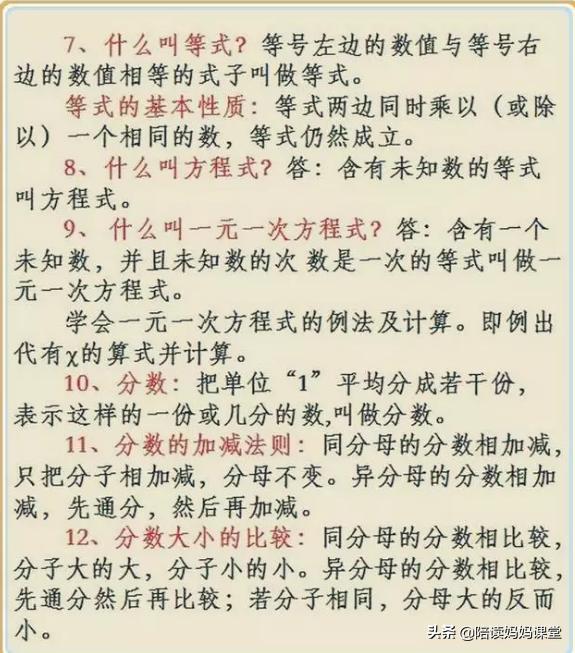 7、什么叫等式？等号左边的数值与等号右
边的数值相等的式子叫做等式。
等式的基本性质：等式两边同时乘以（或除
以）一个相同的数，等式仍然成立。
8、什么叫方程式？答：含有未知数的等式
叫方程式。
9、 什么叫一元一次方程式？答：含有一个
未知数，并且未知数的次 数是一次的等式叫做一
元一次方程式。
学会一元一次方程式的例法及计算。即例出
代有χ的算式并计算。
10、分数：把单位“1”平均分成若干份，
表示这样的一份或几分的数,叫做分数。
11、分数的加减法则：同分母的分数相加减，
只把分子相加减，分母不变。异分母的分数相加
减，先通分，然后再加减。
12、分数大小的比较：同分母的分数相比较，
分子大的大，分子小的小。异分母的分数相比较，
先通分然后再比较；若分子相同，分母大的反而
小。
头条 @陪读妈妈课堂